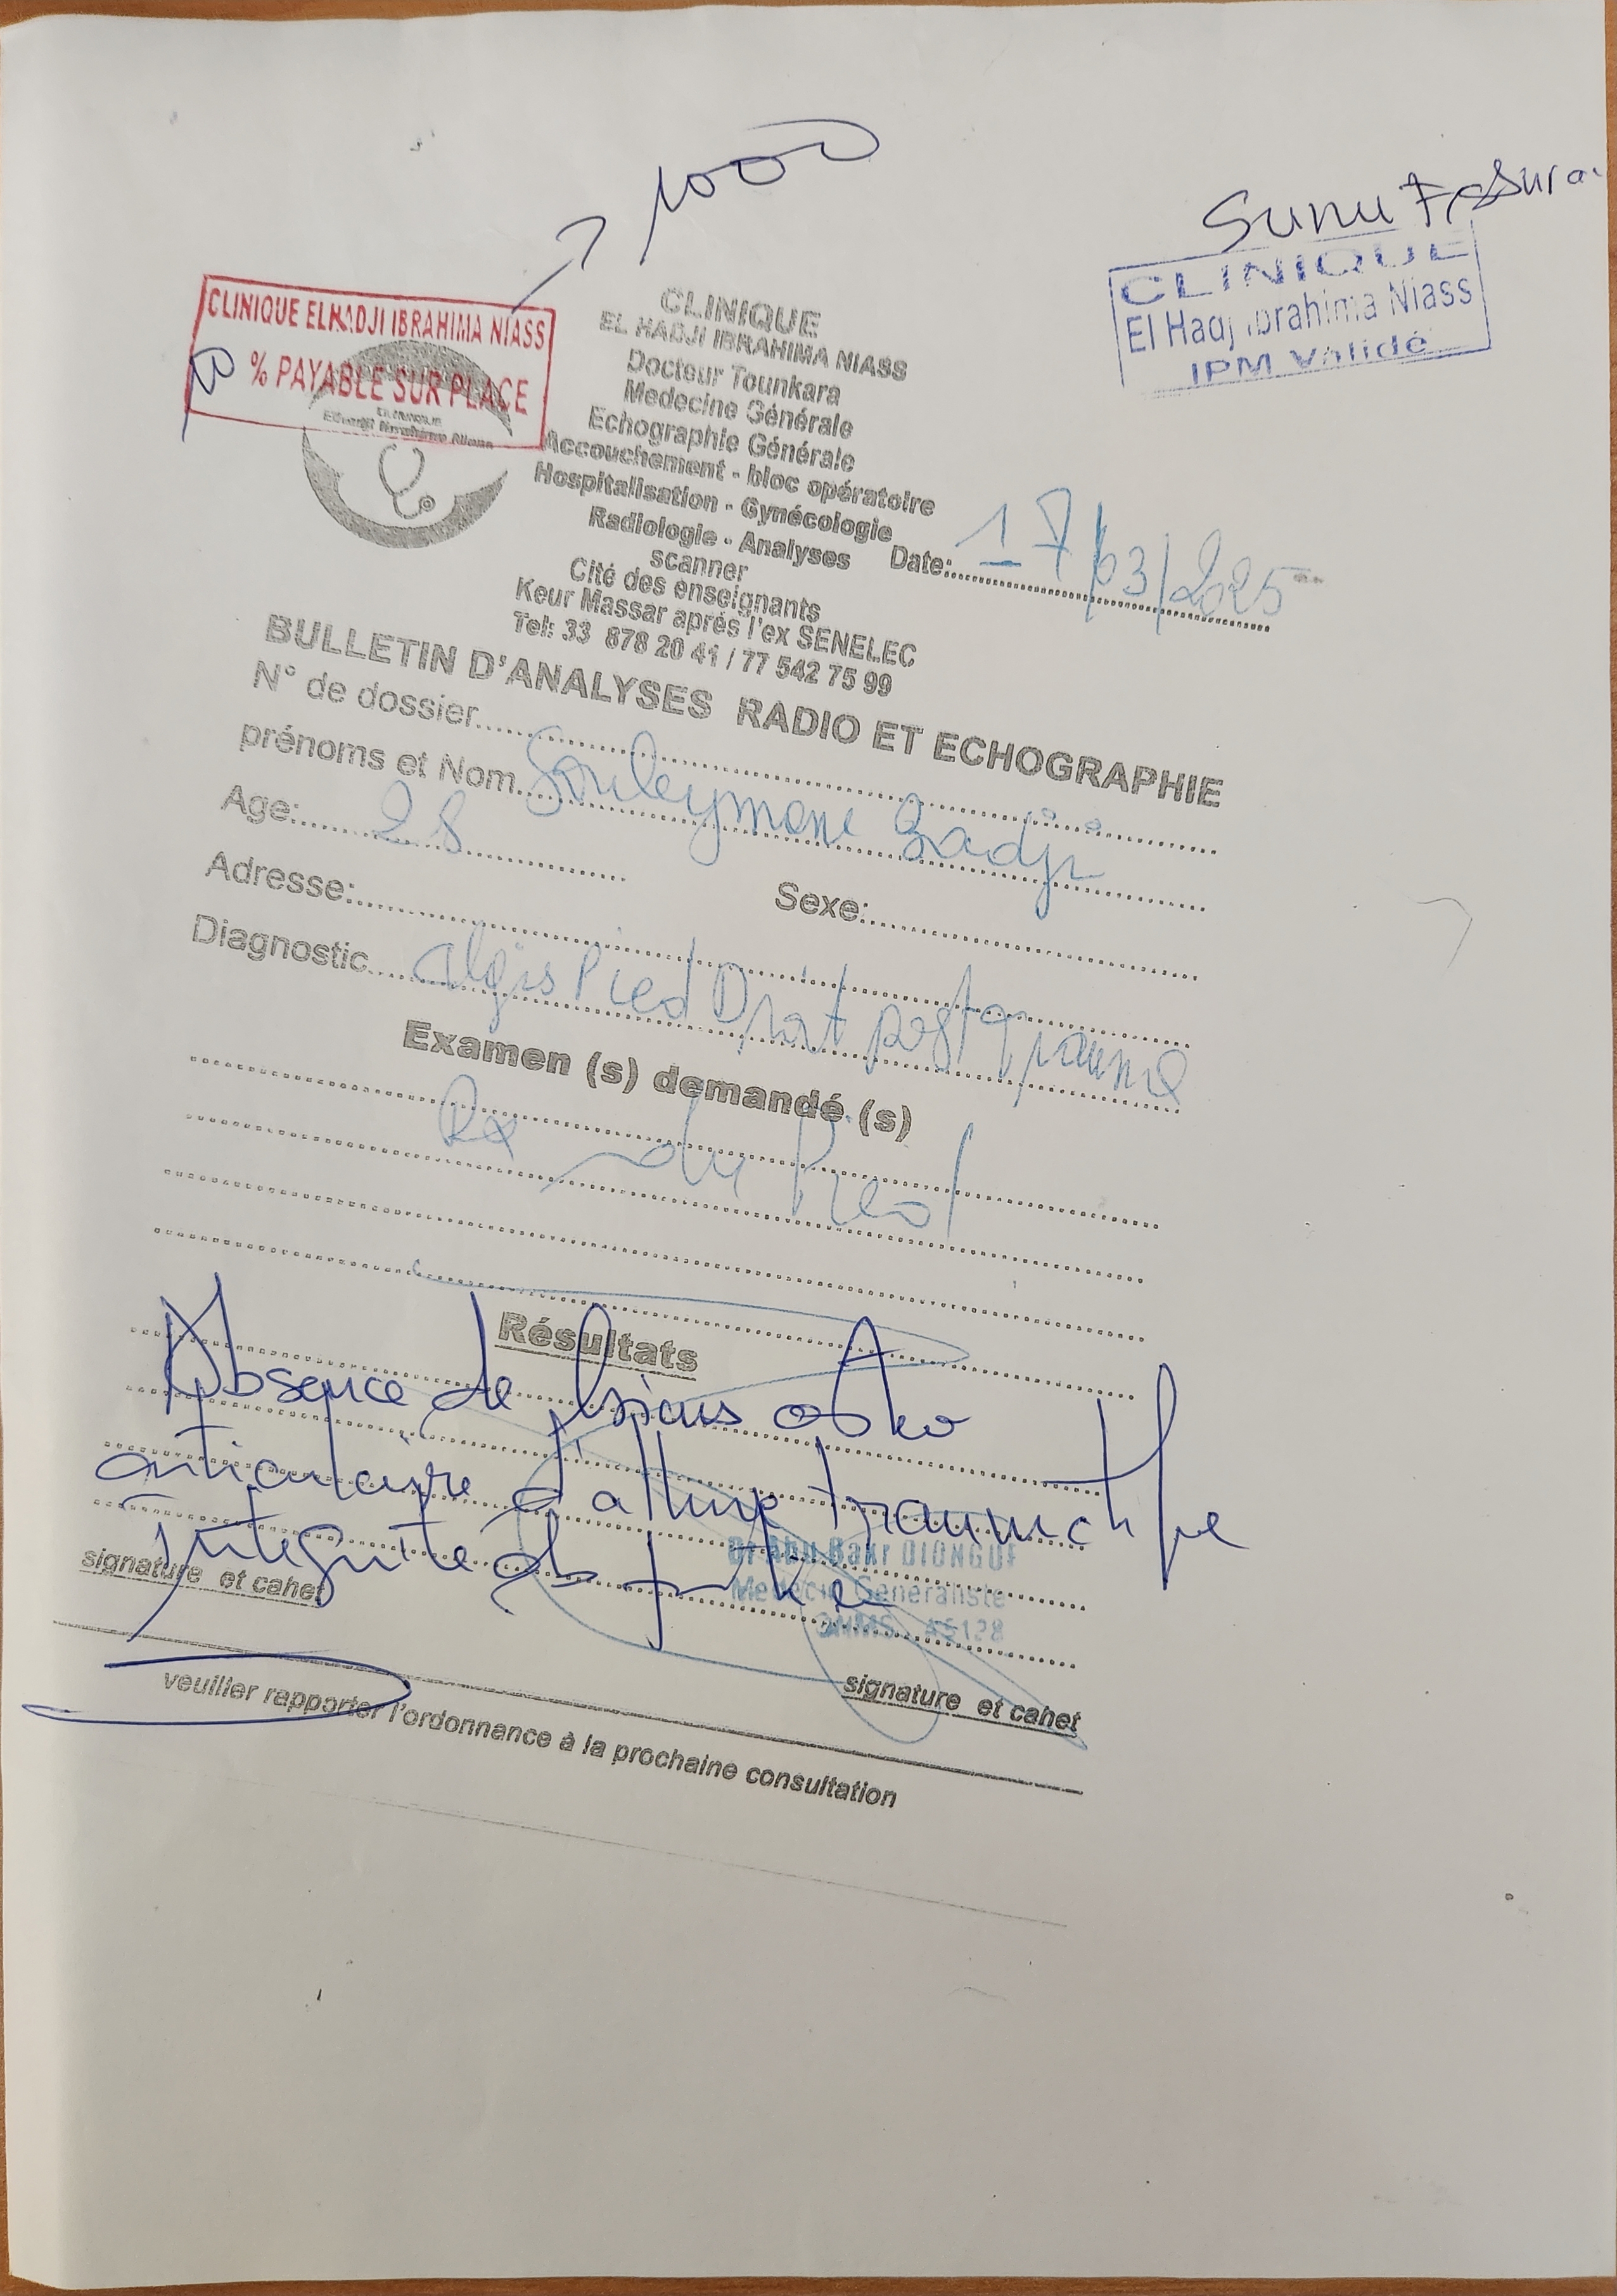 1000
Sunu Assura
CLINIQUE
El Hadj Ibrahima Niass
IPM Validé
CLINIQUE ELHADJI IBRAHIMA NIASS
% PAYABLE SUR PLACE
CLINIQUE
EL HADJI IBRAHIMA NIASS
Docteur Tounkara
Medecine Générale
Echographie Générale
Accouchement - bloc opératoire
Hospitalisation - Gynécologie
Radiologie - Analyses
scanner
Cité des enseignants
Keur Massar aprés l'ex SENELEC
Tel: 33 878 20 41 / 77 542 75 99
Date: 17/03/2025
BULLETIN D'ANALYSES RADIO ET ECHOGRAPHIE
N° de dossier
prénoms et Nom Souleymane Badji
Age: 28
Sexe:
Adresse:
Diagnostic Pied Droit post
Examen (s) demandé (s)
Rx du Pied
Résultats
Absence de lésions osteo
articulaire d'allure
Intégrité des
Dr Abu Bakr DIONGUE
Medecin Generaliste
signature et cahet
signature et cahet
veuiller rapporter l'ordonnance à la prochaine consultation